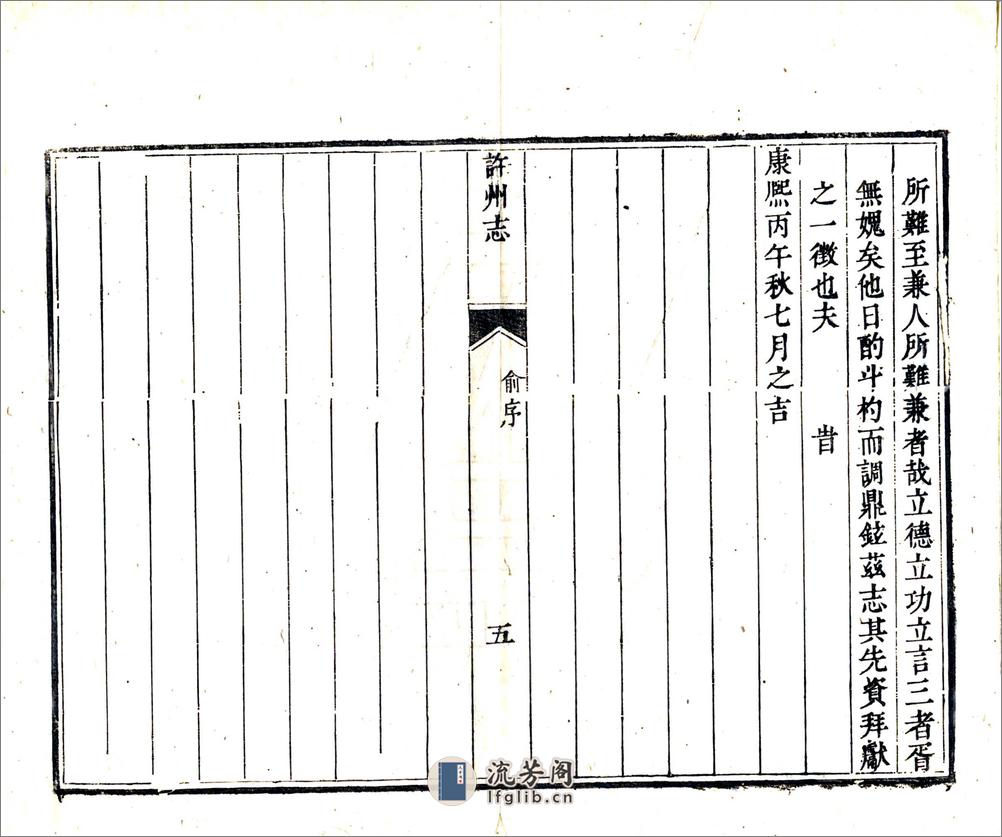 所難至兼人所難兼者哉立德立功立言三者胥
無媿矣他日酌斗杓而調鼎鉉茲志其先資拜獻
之一徵也夫 旹
康熙丙午秋七月之吉
許州志
俞序
五
流芳阁
lfglib.cn